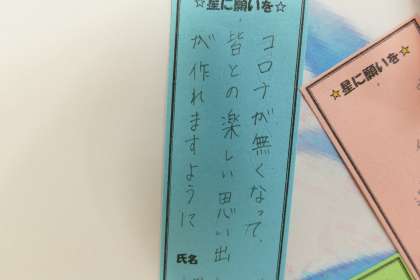 ☆星に願いを☆
コロナが無くなって、
皆との楽しい思い出
が作れますように
氏名
☆星に願いを☆